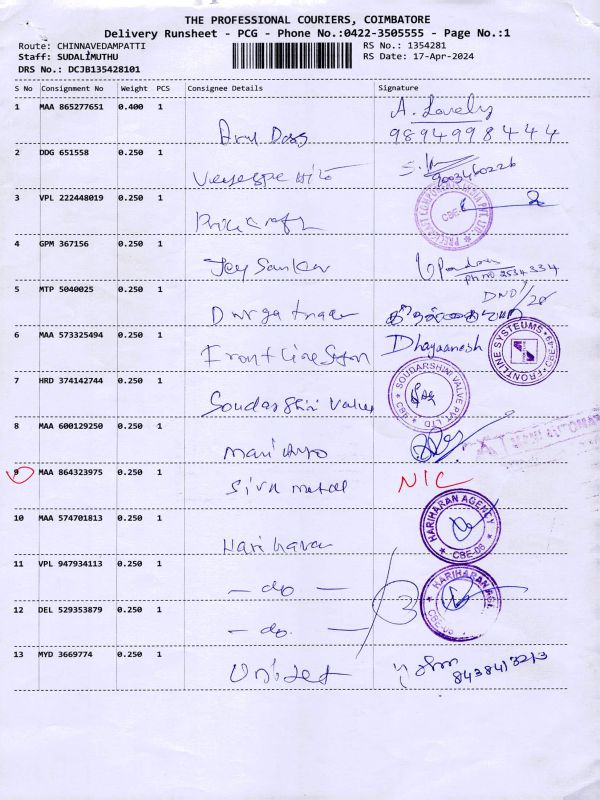 THE PROFESSIONAL COURIERS, COIMBATORE
Delivery Runsheet - PCG - Phone No.:0422-3505555 - Page No.:1
Route: CHINNAVEDAMPATTI RS No.: 1354281
Staff: SUDALIMUTHU RS Date: 17-Apr-2024
DRS No.: DCJB135428101
S No Consignment No Weight PCS Consignee Details Signature
1 MAA 865277651 0.400 1 A. Lovely
Arul Doss 9894998444
2 DDG 651558 0.250 1
9003460226
3 VPL 222448019 0.250 1
Pricecraft
4 GPM 367156 0.250 1
Jey Sankar Ph no 2534334
5 MTP 5040025 0.250 1
Durga trade
6 MAA 573325494 0.250 1 Dhayaanesh FRONTLINE SYSTEUMS CBE-49
Frontline System
7 HRD 374142744 0.250 1 SOUDARSHINI VALVE PVT. LTD
Soudarshini Valves
8 MAA 600129250 0.250 1
9 MAA 864323975 0.250 1 NIC
Siva metal
10 MAA 574701813 0.250 1 HARIHARAN AGENCY CBE-06
Hariharan
11 VPL 947934113 0.250 1 HARIHARAN
- do - 3
12 DEL 529353879 0.250 1
- do. -
13 MYD 3669774 0.250 1
8438413213